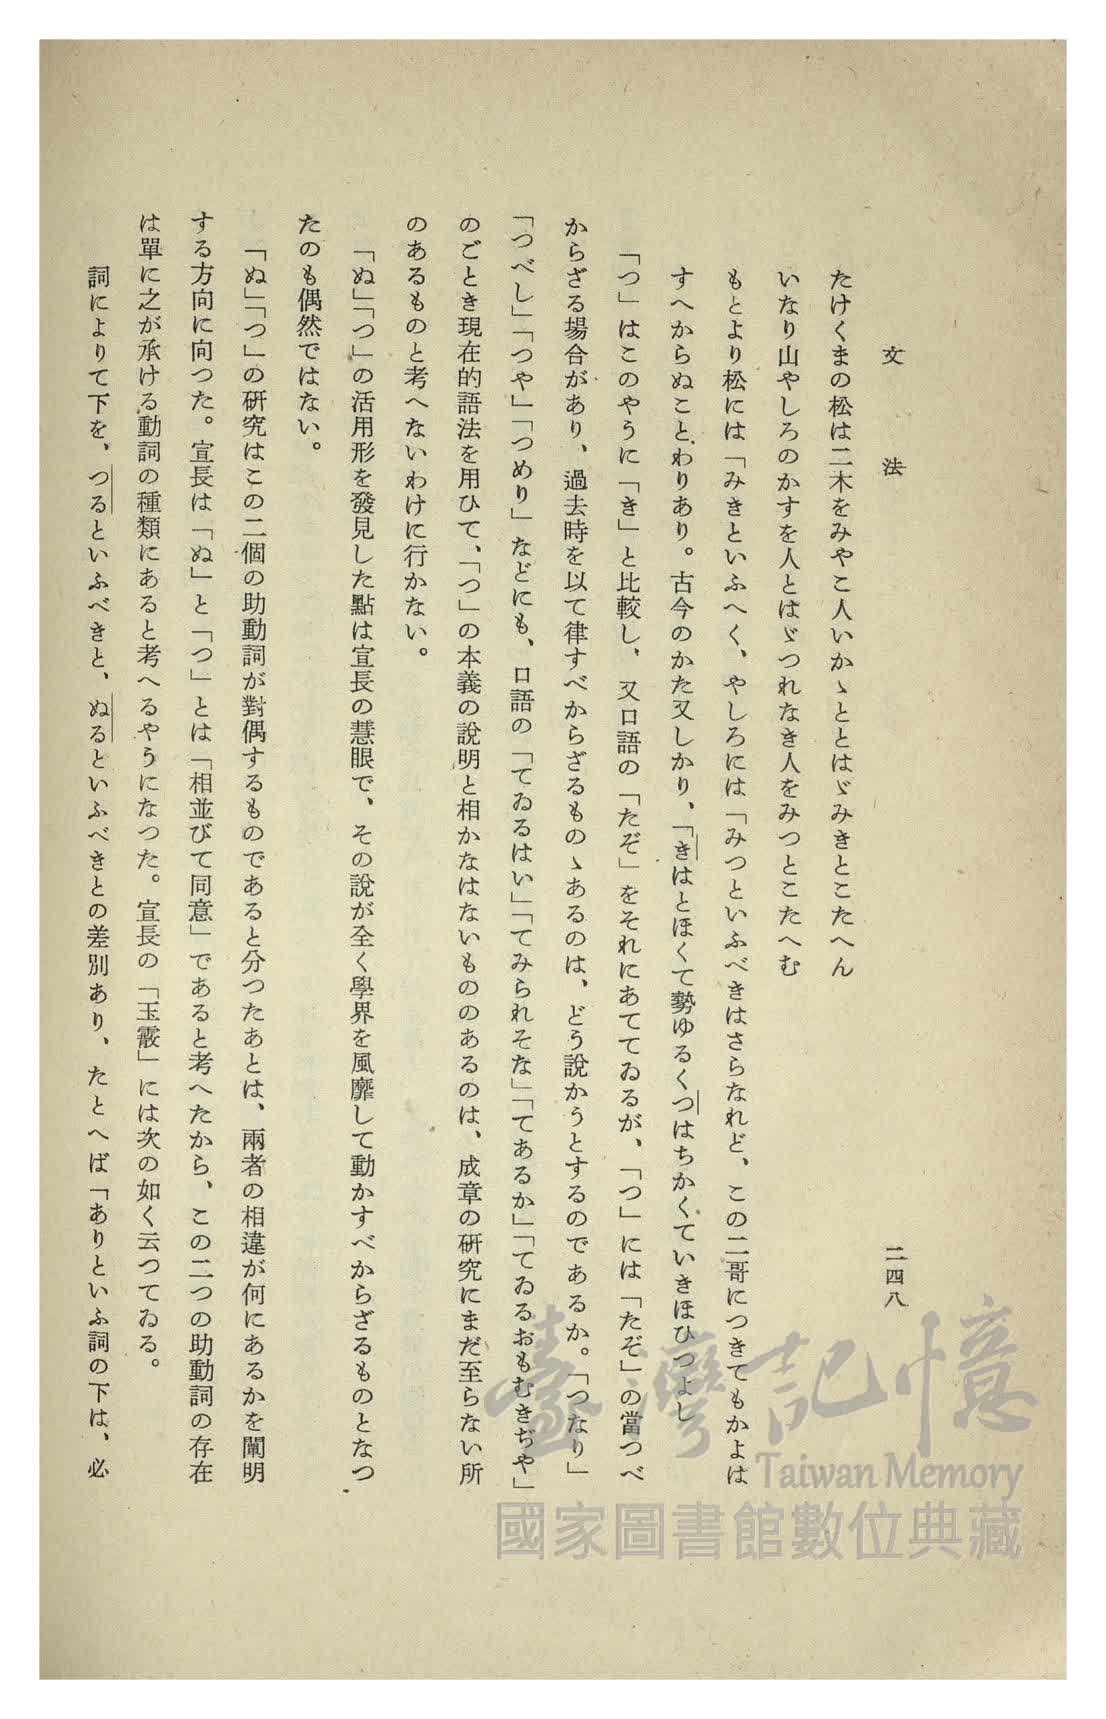 文法
二四八
たけくまの松は二木をみやこ人いかゝととはゞみきとこたへん
いなり山やしろのかすを人とはゞつれなき人をみつとこたへむ
もとより松には「みきといふへく、やしろには「みつといふべきはさらなれど、この二哥につきてもかよは
すへからぬことわりあり。古今のかた又しかり、「きはとほくて勢ゆるくつはちかくていきほひつよし
「つ」はこのやうに「き」と比較し、又口語の「たぞ」をそれにあててゐるが、「つ」には「たぞ」の當つべ
からざる場合があり、過去時を以て律すべからざるものゝあるのは、どう說かうとするのであるか。「つなり」
「つべし」「つや」「つめり」などにも、口語の「てゐるはい」「てみられそな」「てあるか」「てゐるおもむきぢや」
のごとき現在的語法を用ひて、「つ」の本義の說明と相かなはないもののあるのは、成章の硏究にまだ至らない所
のあるものと考へないわけに行かない。
「ぬ」「つ」の活用形を發見した點は宣長の慧眼で、その說が全く學界を風靡して動かすべからざるものとなつ
たのも偶然ではない。
「ぬ」「つ」の硏究はこの二個の助動詞が對偶するものであると分つたあとは、兩者の相違が何にあるかを闡明
する方向に向つた。宣長は「ぬ」と「つ」とは「相並びて同意」であると考へたから、この二つの助動詞の存在
は單に之が承ける動詞の種類にあると考へるやうになつた。宣長の「玉霰」には次の如く云つてゐる。
詞によりて下を、つるといふべきと、ぬるといふべきとの差別あり、たとへば「ありといふ詞の下は、必
臺灣記憶
Taiwan Memory
國家圖書館數位典藏